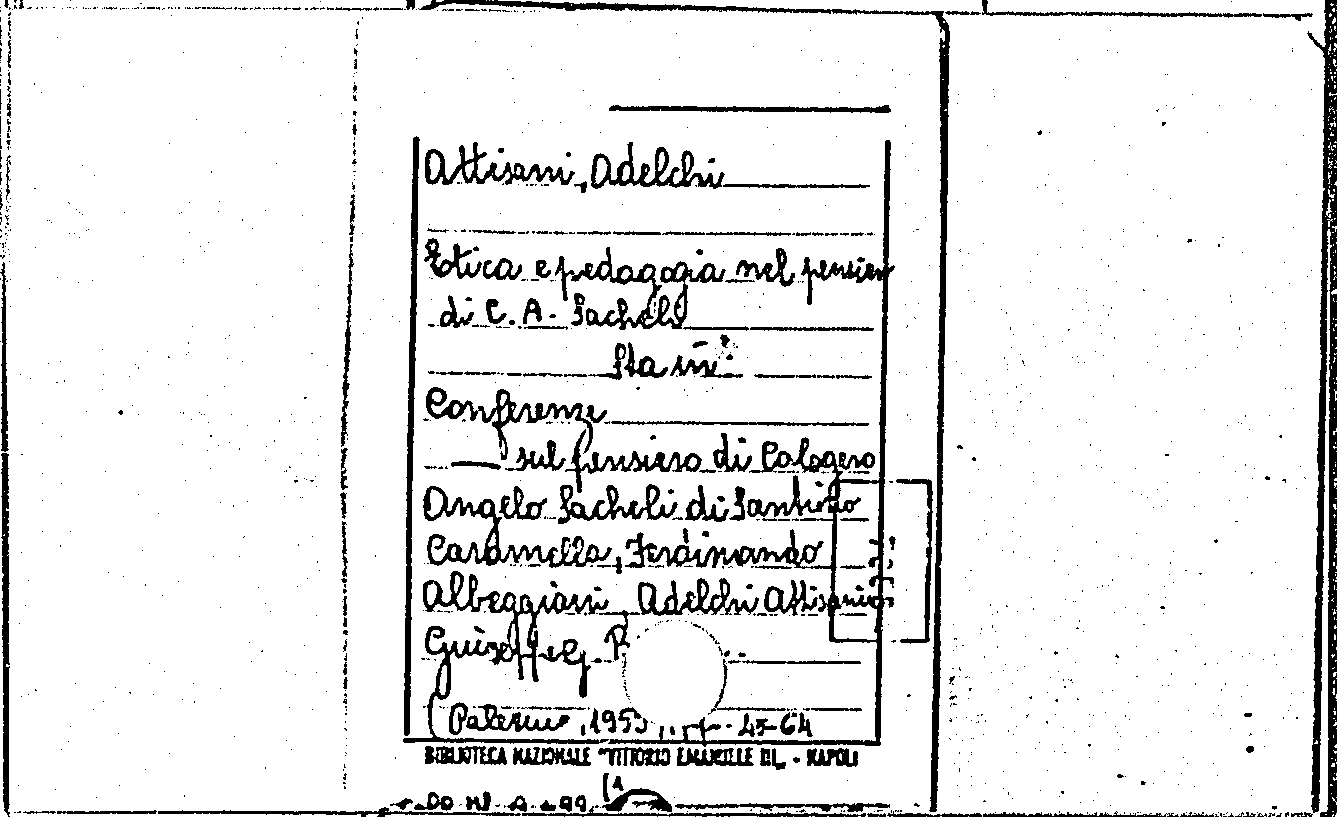 Attisani, Adelchi
Etica e pedagogia nel pensier
di C. A. Sacheli
Sta in:
Conferenze
— sul pensiero di Calogero
Angelo Sacheli di Santino
Caramella, Ferdinando
Albeggiani, Adelchi Attisani
Guiseppe G.
(Palermo, 1953 45-64
BIBLIOTECA NAZIONALE "VITTORIO EMANUELE III" - NAPOLI